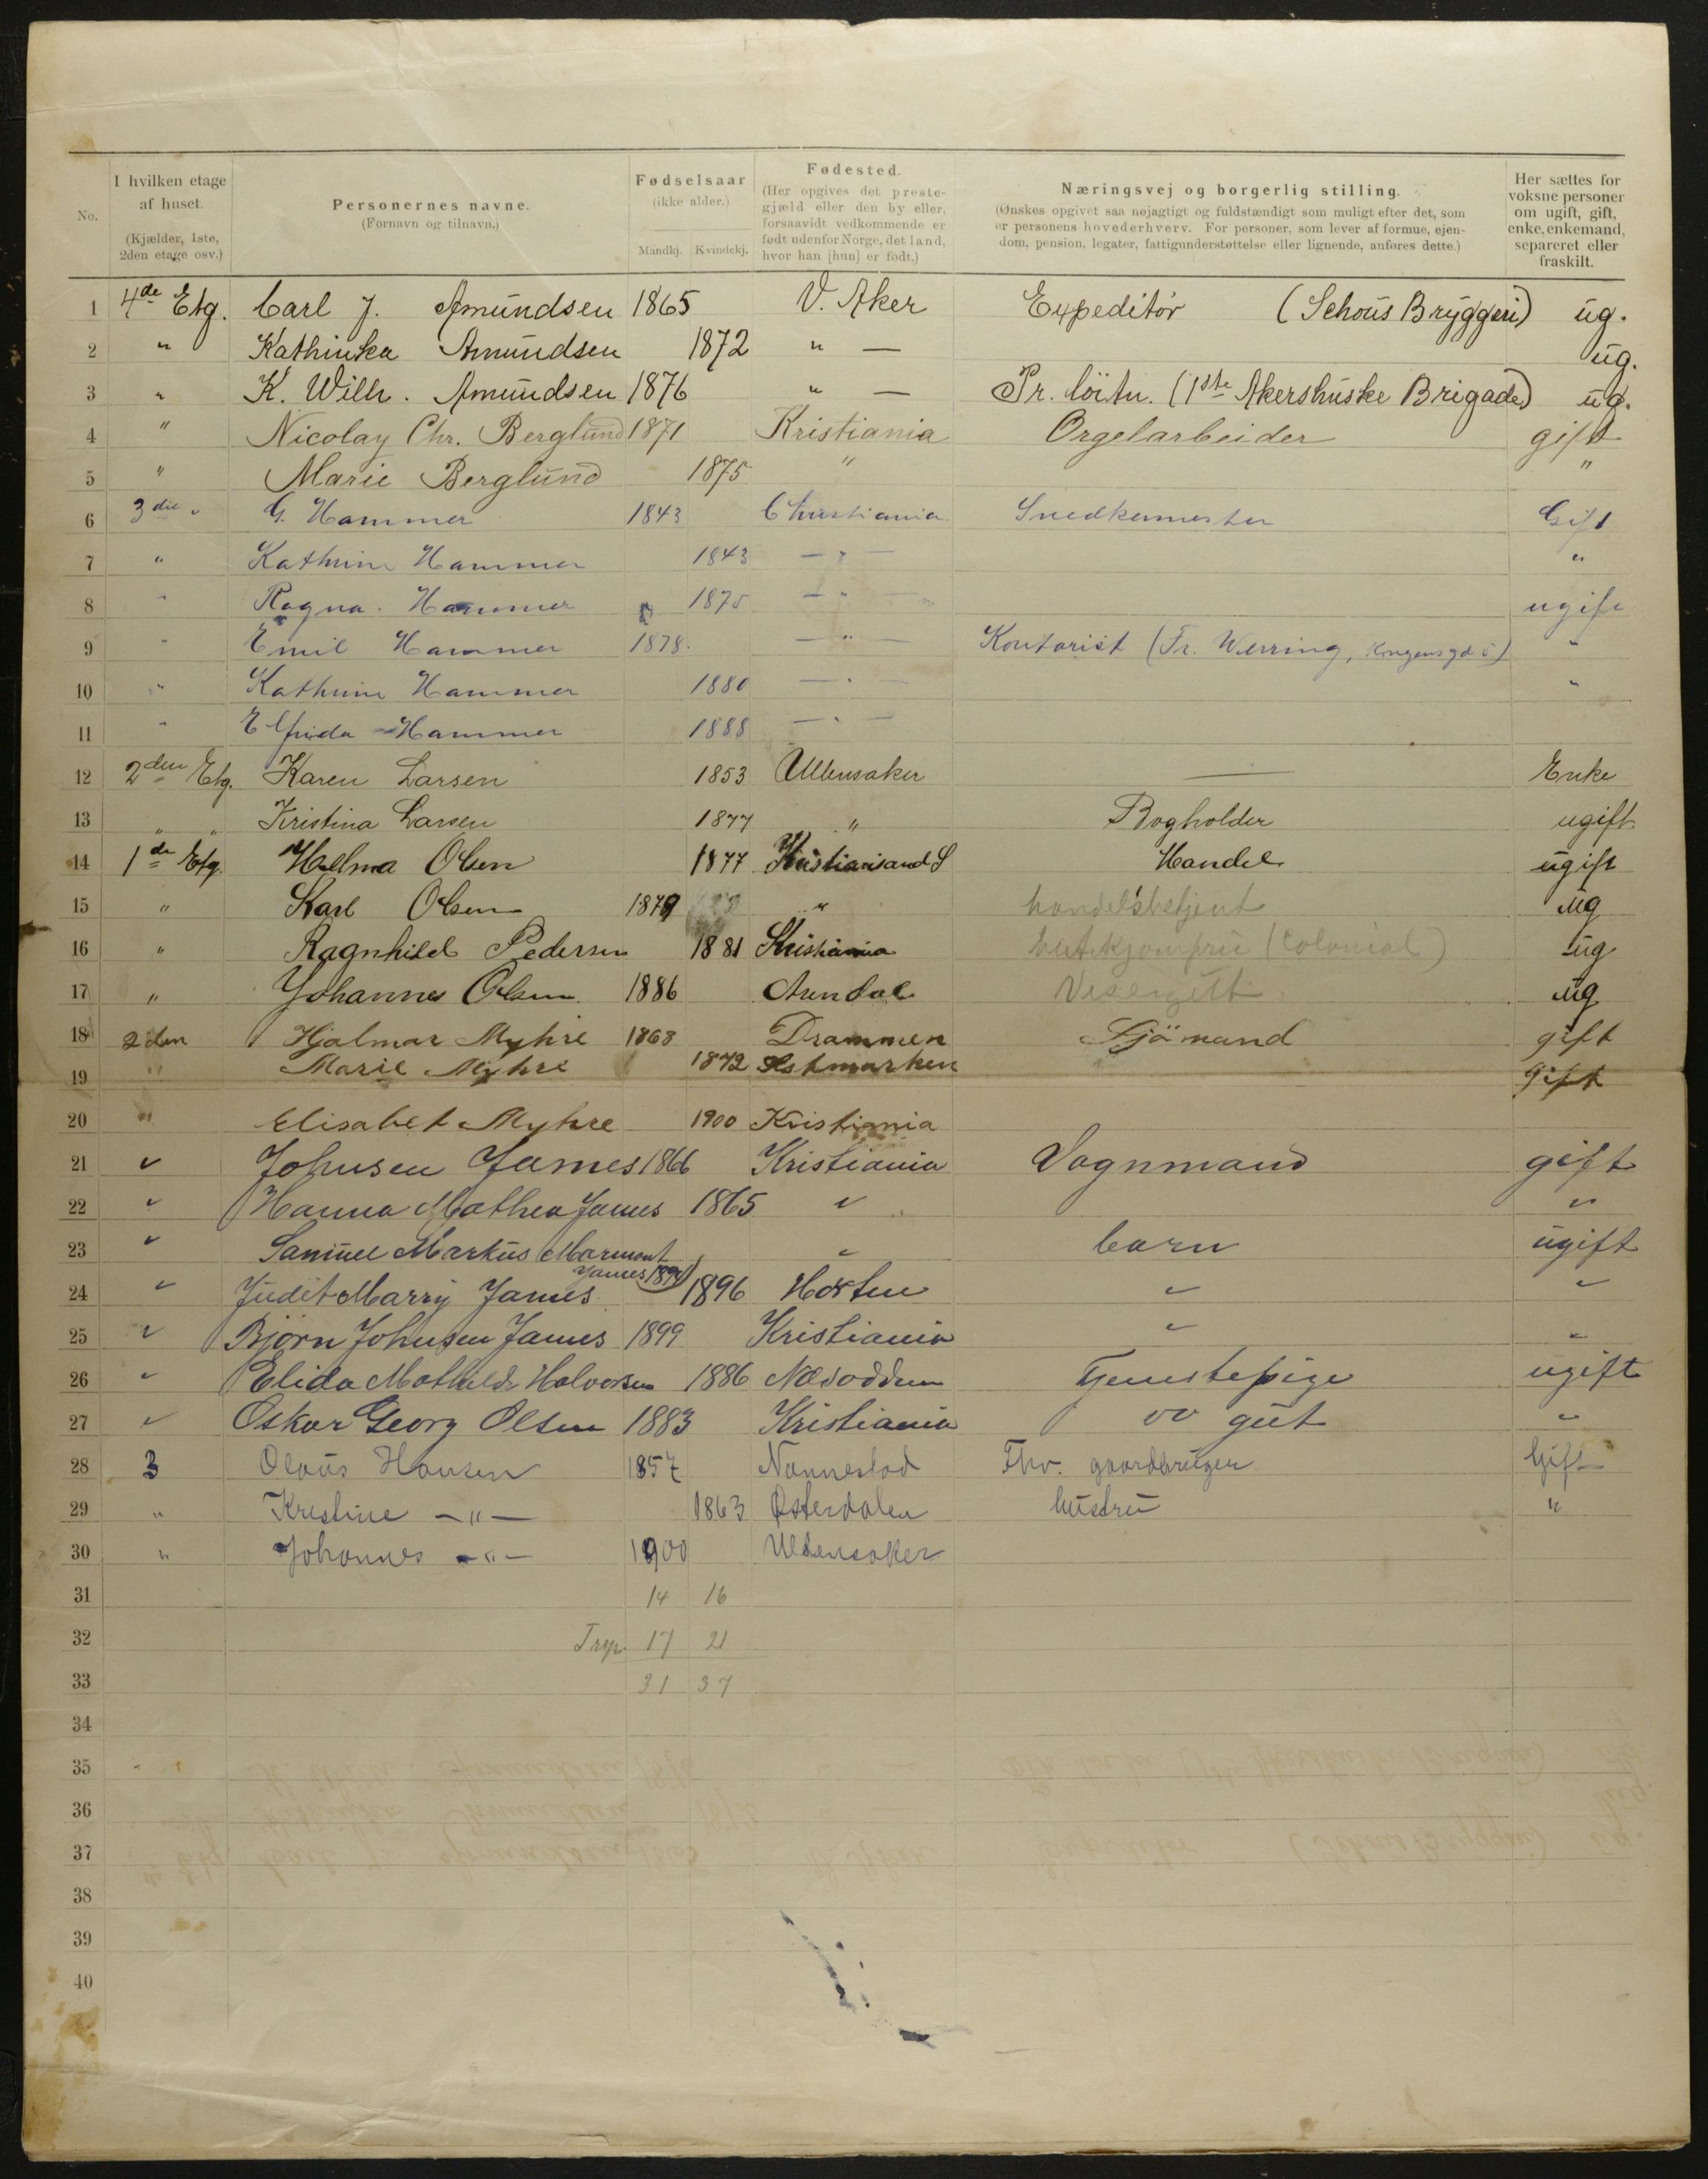 No.
I hvilken etage af huset. (Kjælder, 1ste, 2den etage osv.)
Personernes navne. (Fornavn og tilnavn.)
Fødselsaar (ikke alder.) Mandkj. Kvindekj.
Fødested. (Her opgives det prestegjæld eller den by eller, forsaavidt vedkommende er født udenfor Norge, det land, hvor han [hun] er født.)
Næringsvej og borgerlig stilling. (Ønskes opgivet saa nøjagtigt og fuldstændigt som muligt efter det, som er personens hovederhverv. For personer, som lever af formue, ejendom, pension, legater, fattigunderstøttelse eller lignende, anføres dette.)
Her sættes for voksne personer om ugift, gift, enke, enkemand, separeret eller fraskilt.
1 4de Etg. Carl J. Amundsen 1865 V. Aker Expeditør (Schous Bryggeri) ug.
2 " Kathinka Amundsen 1872 " — ug.
3 " K. Wilh. Amundsen 1876 " — Pr. löitn. (1ste Akershuske Brigade) ug.
4 " Nicolay Chr. Berglund 1871 Kristiania Orgelarbeider gift
5 " Marie Berglund 1875 " "
6 3die " G. Hammer 1843 Christiania Snedkermester Gift
7 " Kathrine Hammer 1843 — " — "
8 " Ragna Hammer 1875 — " — ugift
9 " Emil Hammer 1878. — " — Kontorist (Fr. Werring, Kongensgd 5) "
10 " Kathrine Hammer 1880 — " — "
11 " Elfrida Hammer 1888 — " —
12 2den Etg. Karen Larsen 1853 Ullensaker — Enke
13 " " Kristina Larsen 1877 " Bogholder ugift
14 1de Etg. Helma Olsen 1877 Kristiansand S Handel ugift
15 " Karl Olsen 1879 " handelsbetjent ug
16 " Ragnhild Pedersen 1881 Kristiania butikjomfru (Colonial) ug
17 " Johannes Olsen 1886 Arendal Visergut ug
18 2den Hjalmar Myhre 1868 Drammen Sjömand gift
19 " Marie Myhre 1872 Østmarken gift
20 " Elisabet Myhre 1900 Kristiania
21 " Johnsen James 1866 Kristiania Vognmand gift
22 " Hanna Mathea James 1865 " "
23 " Samuel Markus Marmont James " barn ugift
24 " Judit Marry James 1896 Horten " "
25 " Bjørn Johnsen James 1899 Kristiania " "
26 " Elida Mathilde Halvorsen 1886 Næsodden Tjenestepige ugift
27 " Oskar Georg Olsen 1883 Kristiania " gut "
28 3 Olaus Hansen 1857 Nannestad Fhv. gaardbruger Gift
29 " Kristine — " — 1863 Østerdalen hustru "
30 " Johannes — " — 1900 Ullensaker
31 14 16
32 17 21
33 31 37
34
35
36
37
38
39
40